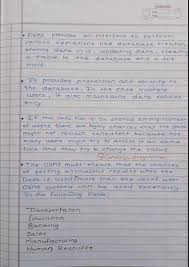 • DBMS provides an interface to perform
various operations like database creation,
storing data in it, updating data, creating
a table in the database and a lot
more.
• It provides protection and security to
the database. In the case multiple
users, it also maintains data consist
ency
• If the data can be shared among number
of users there are highly chances that the data
might not remain consistent because too
many users might try to access it at same
time and may try to change the
value
• The DBMS must ensure that chances
of getting anomalies results when the
data is used more than one user
DBMS system can be used extensively
in the following fields:
Transportation
Education
Banking
Sales
Manufacturing
Human Resource